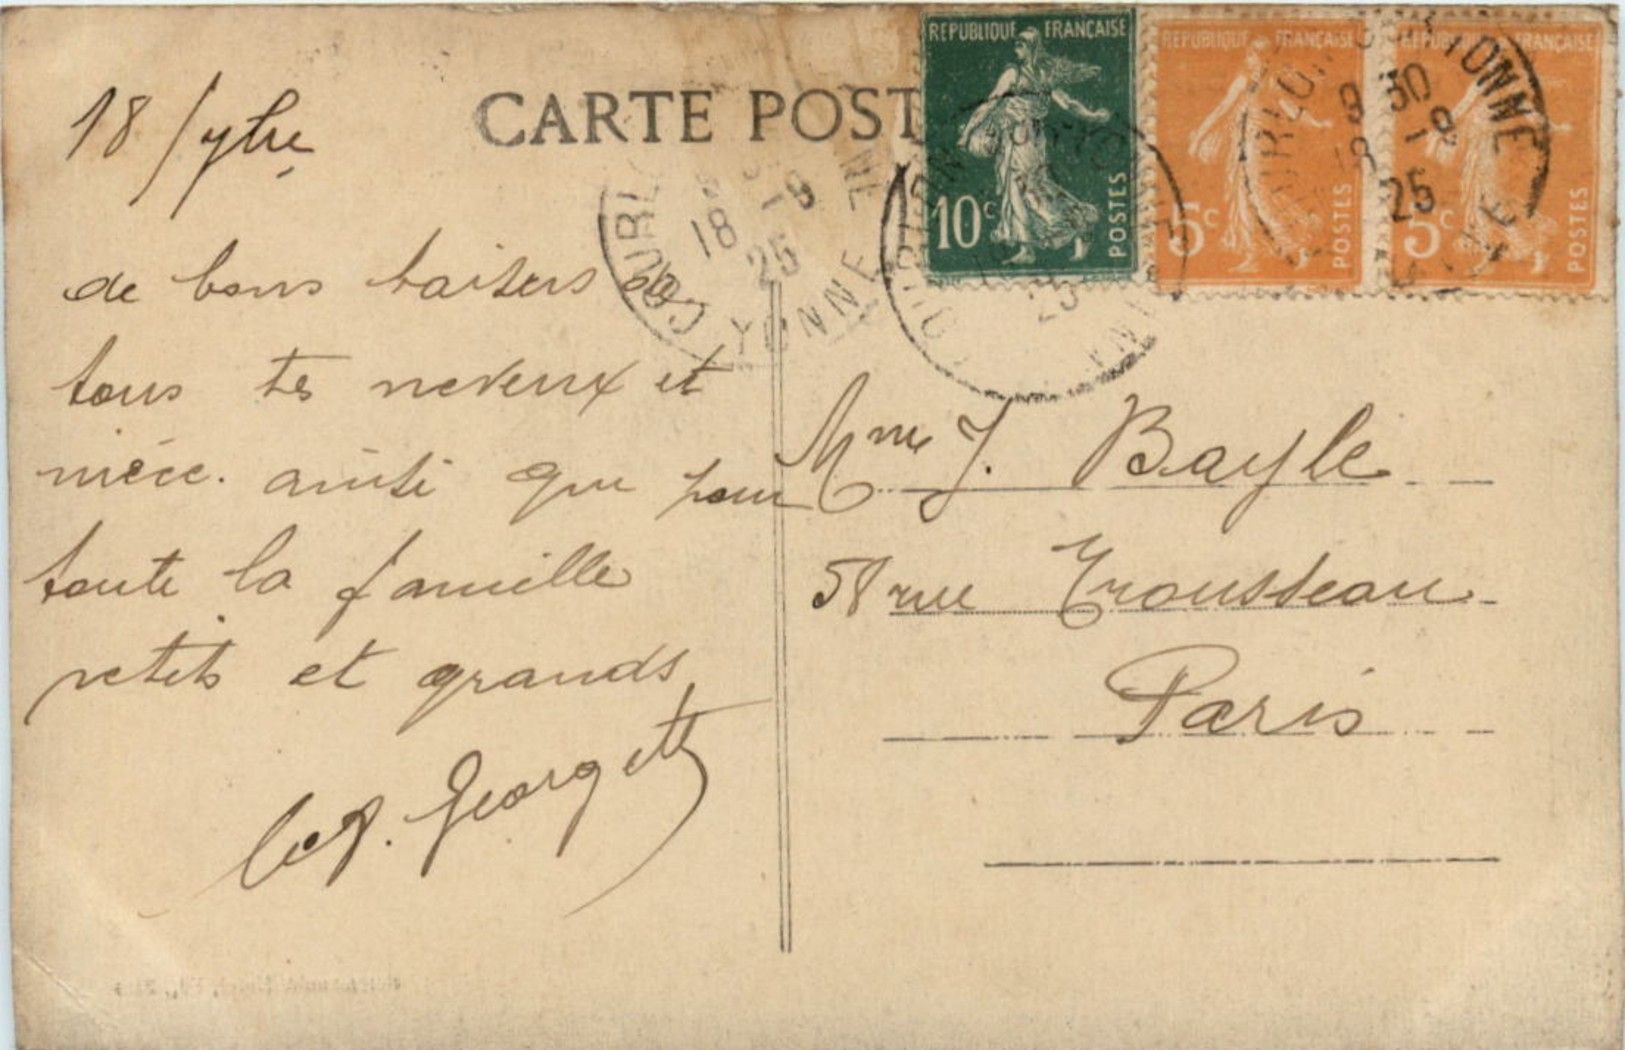 CARTE POST
REPUBLIQUE FRANÇAISE
10c
POSTES
REPUBLIQUE FRANÇAISE
5c
POSTES
REPUBLIQUE FRANÇAISE
5c
POSTES
COURLON
18 -9
25
YONNE
COURLON SUR YONNE
9 30
18 -9
25
18 7bre
de bons baisers de
tous tes neveux et
nièce. ainsi que pour
toute la famille
petits et grands
Georgette
Mme J. Bayle
58 rue Trousseau
Paris